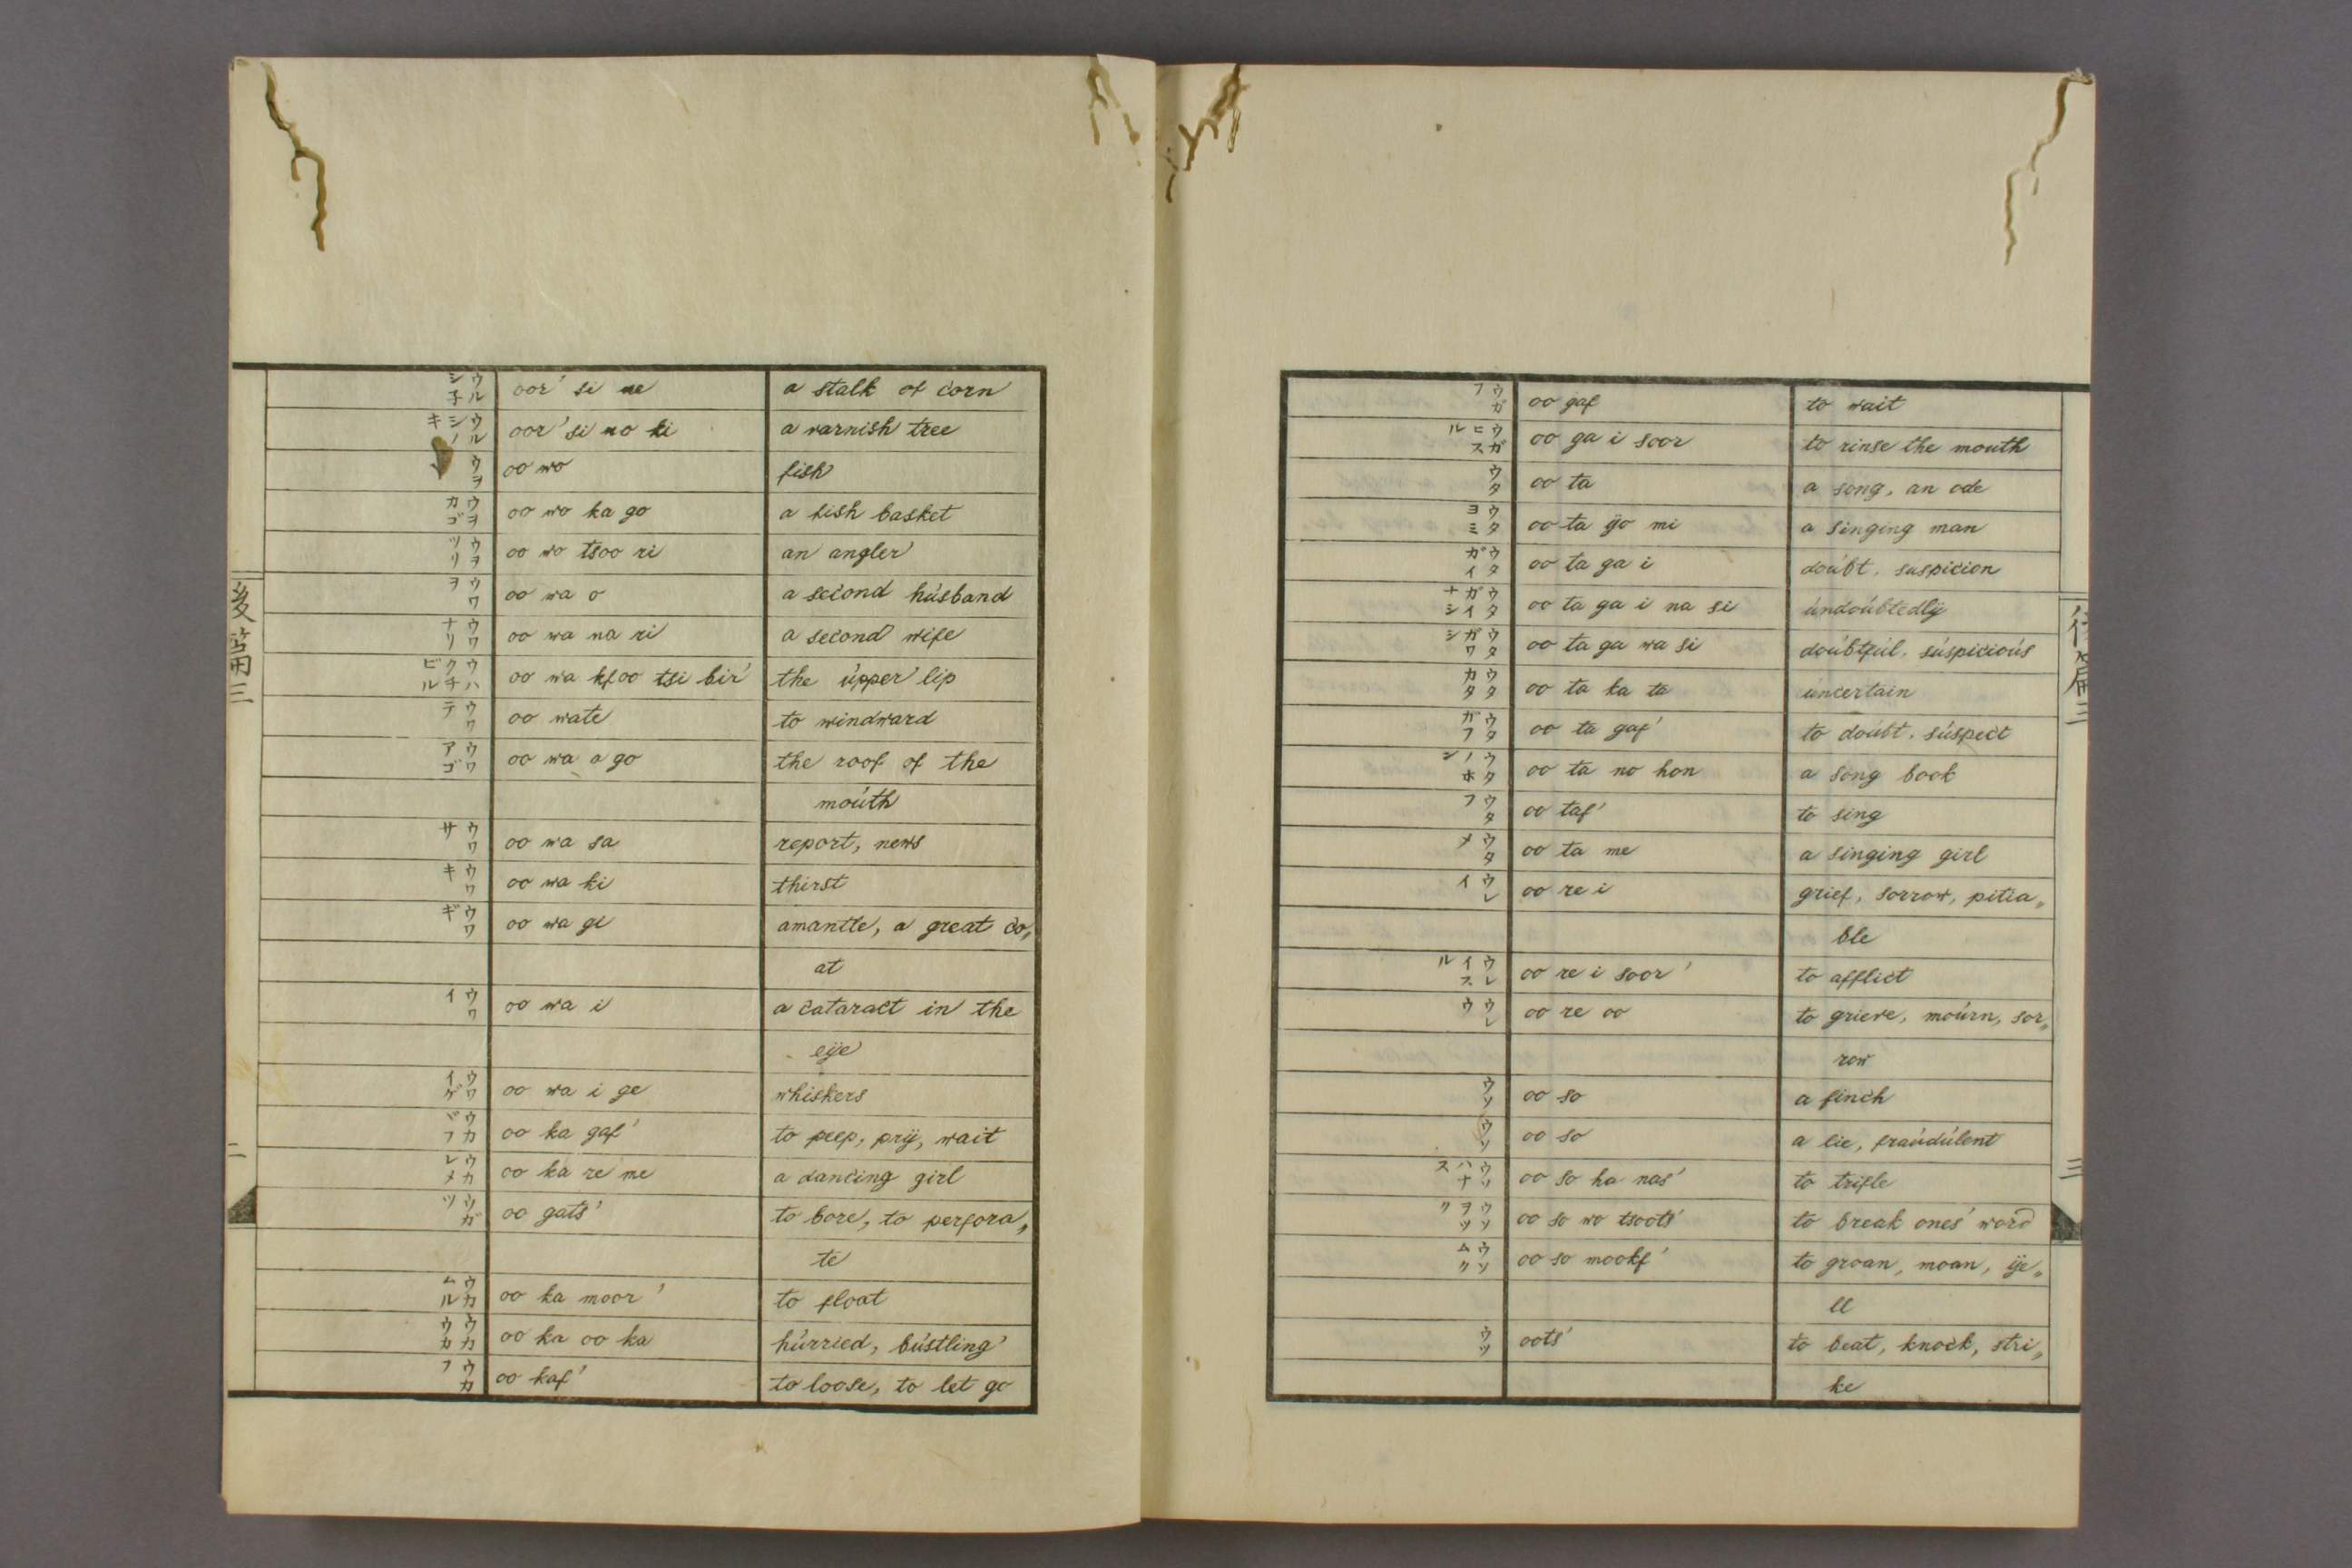 ウルシ子 oor' si ne a stalk of corn
ウルシノキ oor' si no ki a varnish tree
ウヲ oo wo fish
ウヲカゴ oo wo ka go a fish basket
ウヲツリ oo wo tsoo ri an angler
ウワヲ oo wa o a second húsband
ウワナリ oo wa na ri a second wife
ウハクチビル oo wa kfoo tsi bir' the úpper lip
ウワテ oo wate to windward
ウワアゴ oo wa a go the roof of the
moúth
ウワサ oo wa sa report, news
ウワキ oo wa ki thirst
ウワギ oo wa gi amantle, a great co„
at
ウワイ oo wa i a cataract in the
eÿe
ウワイゲ oo wa i ge whiskers
ウカヾフ oo ka gaf' to peep, prÿ, wait
ウカレメ oo ka re me a dancing girl
ウガツ oo gats' to bore, to perfora„
te
ウカムル oo ka moor' to float
ウカウカ oo ka oo ka húrried, bústling
ウカフ oo kaf' to loose, to let go
後篇三
二
ウガフ oo gaf to wait
ウガヒスル oo ga i soor to rinse the mouth
ウタ oo ta a song, an ode
ウタヨミ oo ta ÿo mi a singing man
ウタガイ oo ta ga i doúbt, suspicion
ウタガイナシ oo ta ga i na si úndoúbtedlÿ
ウタガワシ oo ta ga wa si doúbtfúl, súspicioús
ウタカタ oo ta ka ta úncertain
ウタガフ oo ta gaf' to doúbt, súspect
ウタノホン oo ta no hon a song book
ウタフ oo taf' to sing
ウタメ oo ta me a singing girl
ウレイ oo re i grief, sorrow, pitia„
ble
ウレイスル oo re i soor' to afflict
ウレウ oo re oo to grieve, moúrn, sor„
row
ウソ oo so a finch
ウソ oo so a lie, fraúdúlent
ウソハナス oo so ha nas' to trifle
ウソヲツク oo so wo tsoots' to break ones' word
ウソムク oo so mookf' to groan, moan, ÿe„
ll
ウツ oots' to beat, knock, stri„
ke
後篇三
三